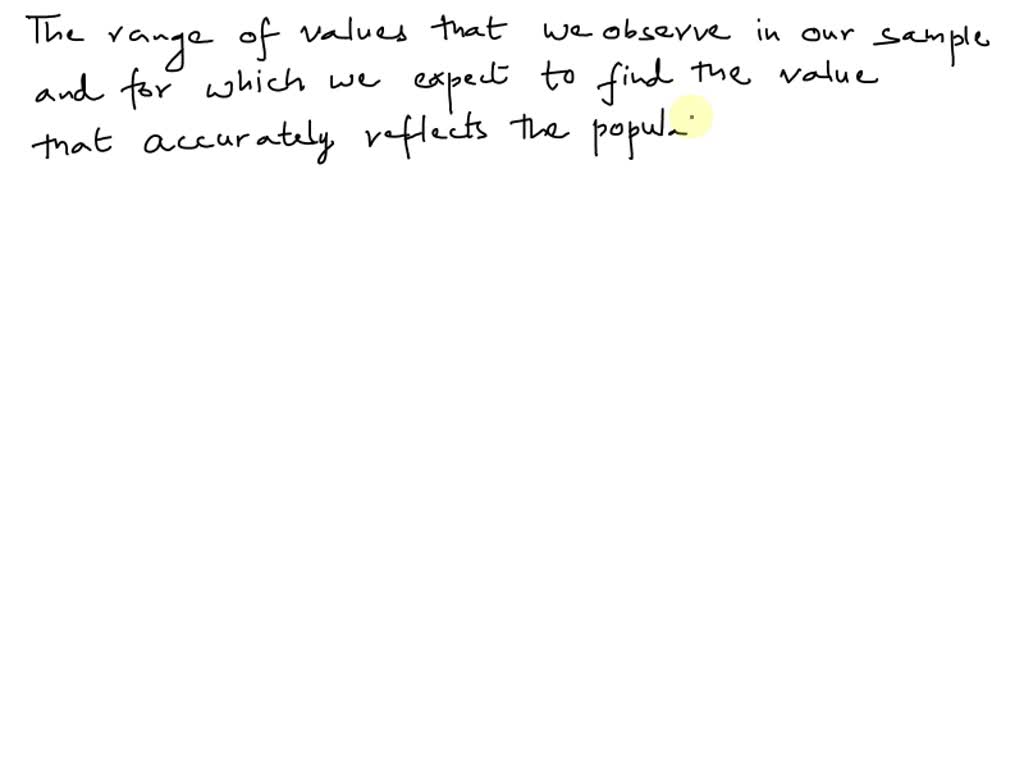 The range of values that we observe in our sample
and for which we expect to find the value
that accurately reflects the popula